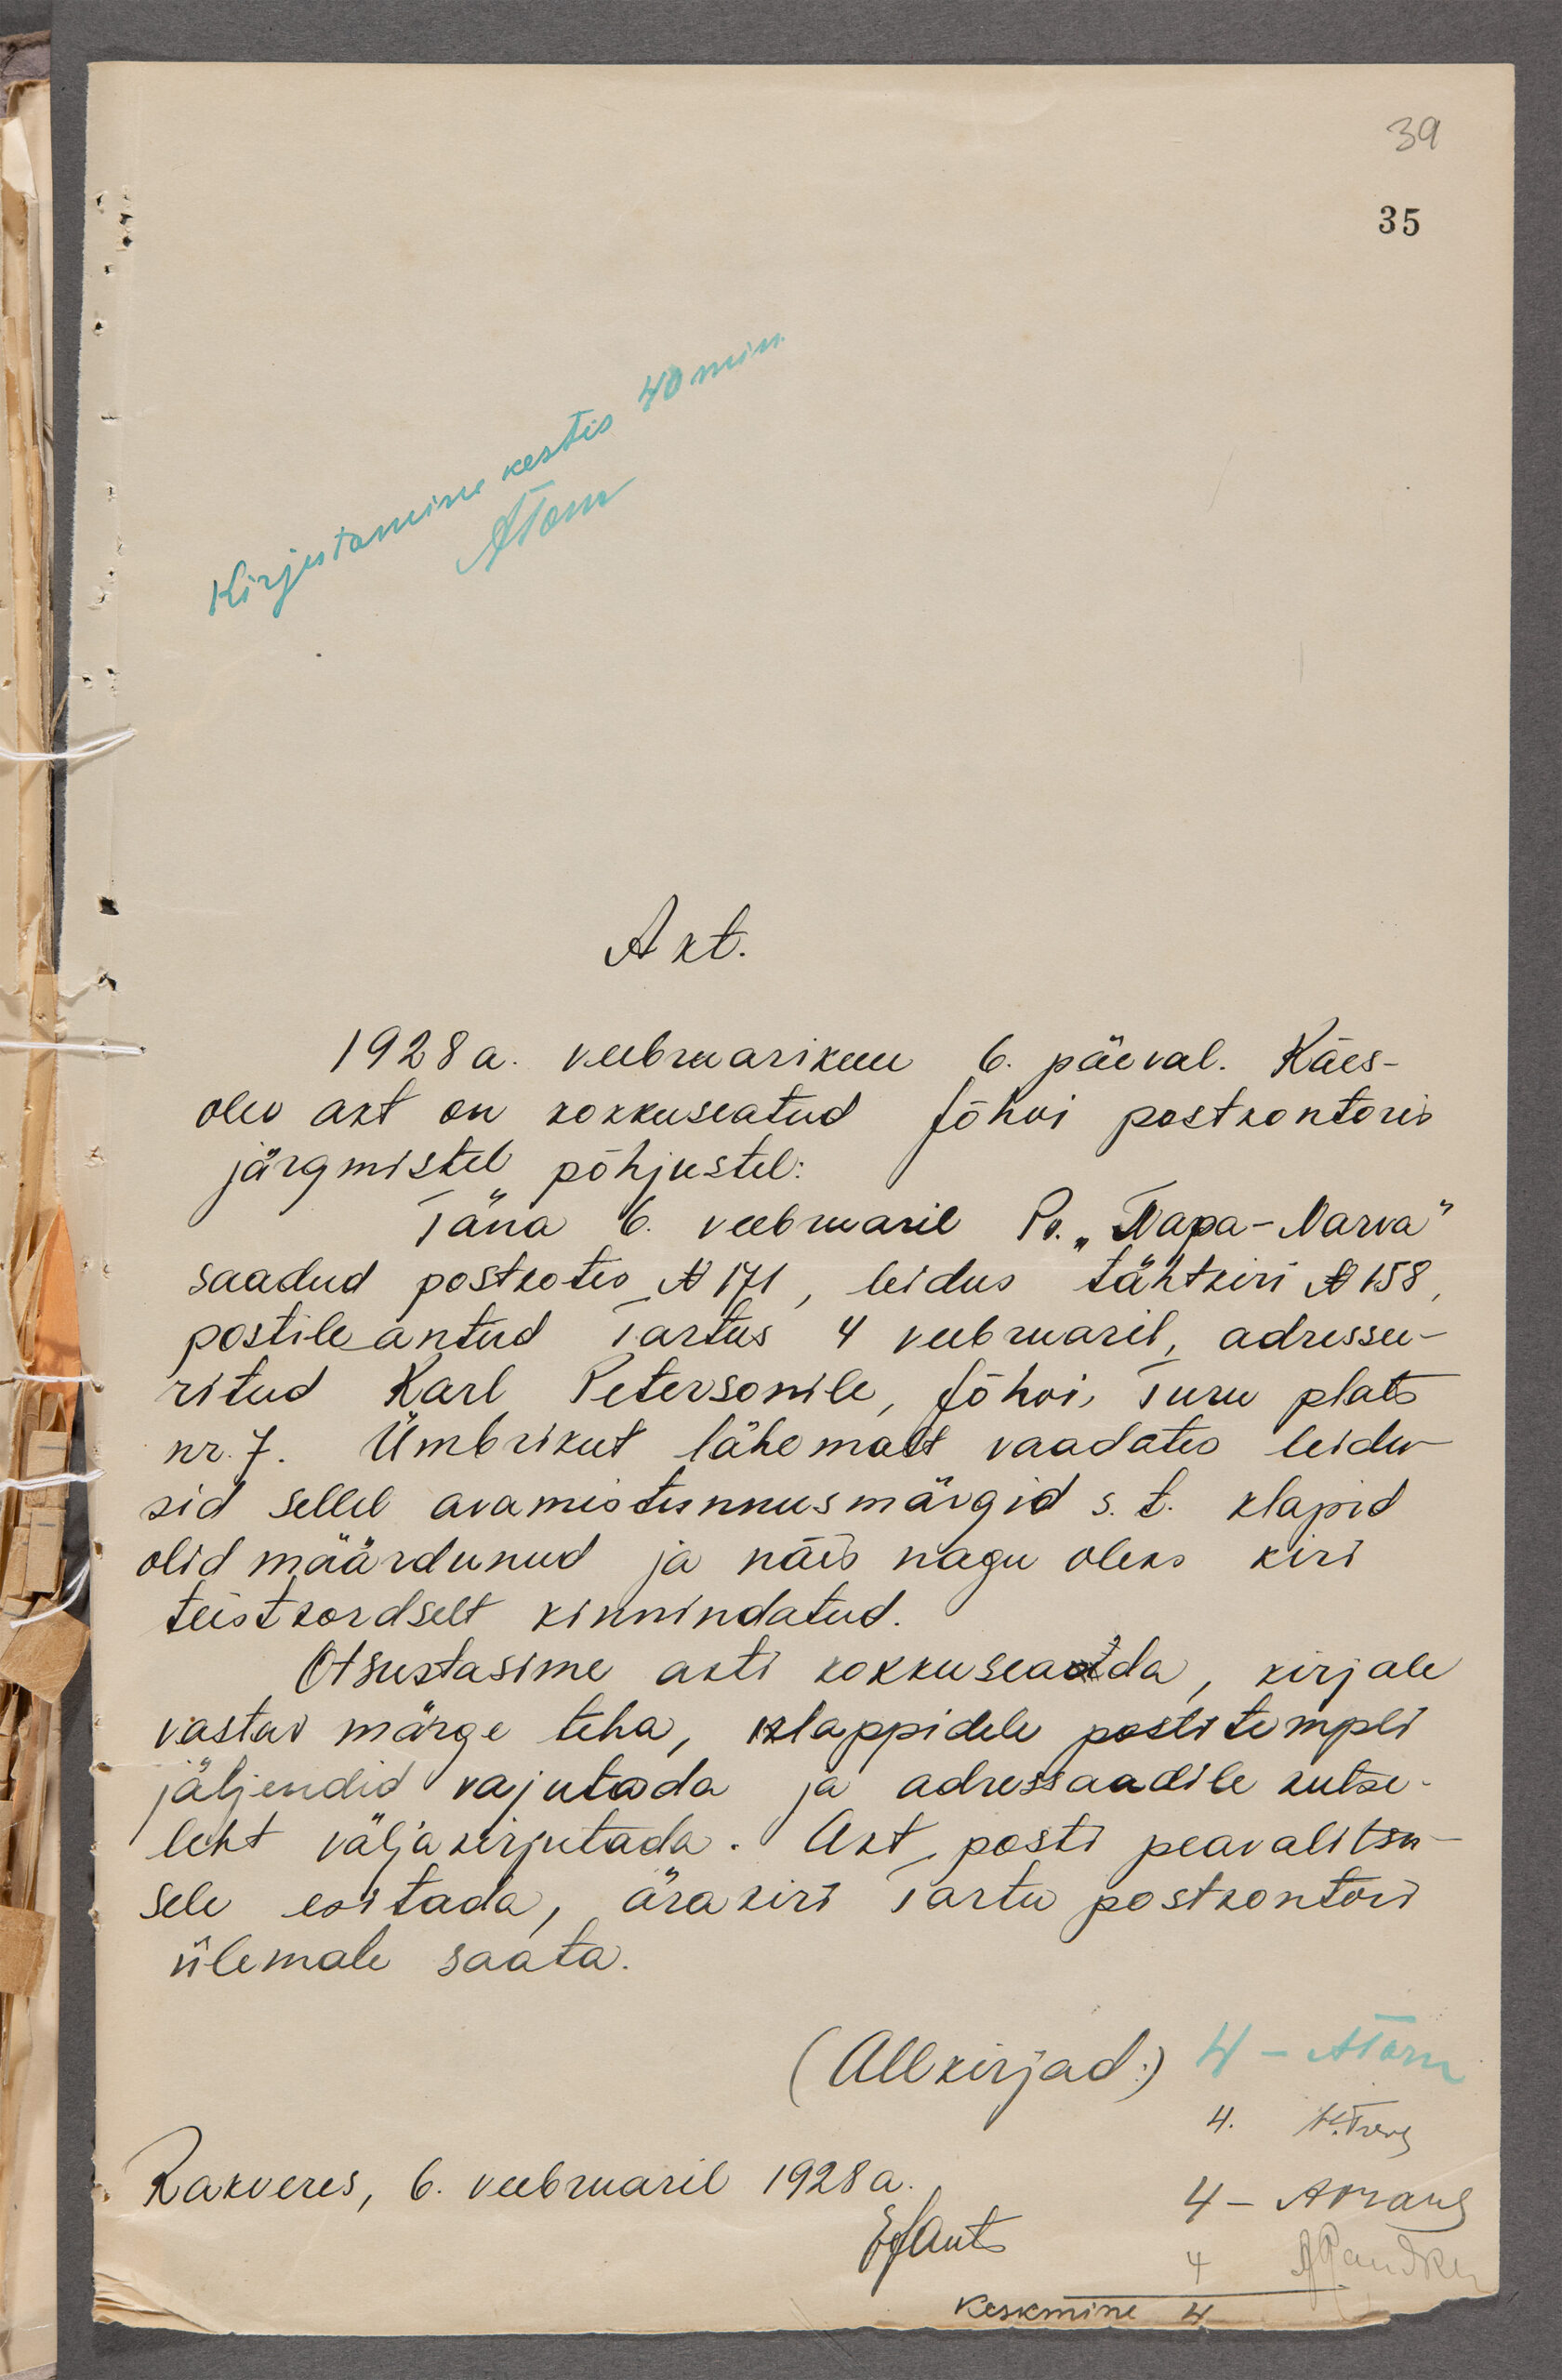 39
35
Kirjutamine kestis 40 min.
ATom
Akt.
1928 a. veebruarikuu 6. päeval. Käes-
olev akt on kokkuseatud Jõhvi postkontoris
järgmistel põhjustel:
Täna 6. veebruaril Pv. „Tapa-Narva"
saadud postkotis № 171, leidus tähtkiri № 158,
postile antud Tartus 4 veebruaril, adressee-
ritud Karl Petersonile, Jõhvi, Turu plats
nr. 7. Ümbrikut lähemalt vaadates leidu-
sid sellel avamistunnusmärgid s.t. klapid
olid määrdunud ja näis nagu oleks kiri
teistkordselt kinnindatud.
Otsustasime akti kokkuseada, kirjale
vastav märge teha, klappidele postitempli
jäljendid vajutada ja adressaadile kutse-
leht väljakirjutada. Akt posti peavalitsu-
sele esitada, ärakiri Tartu postkontori
ülemale saata.
(Allkirjad:) 4 - ATom
4.
Rakveres, 6. veebruaril 1928 a.
4 -
4
Keskmine 4